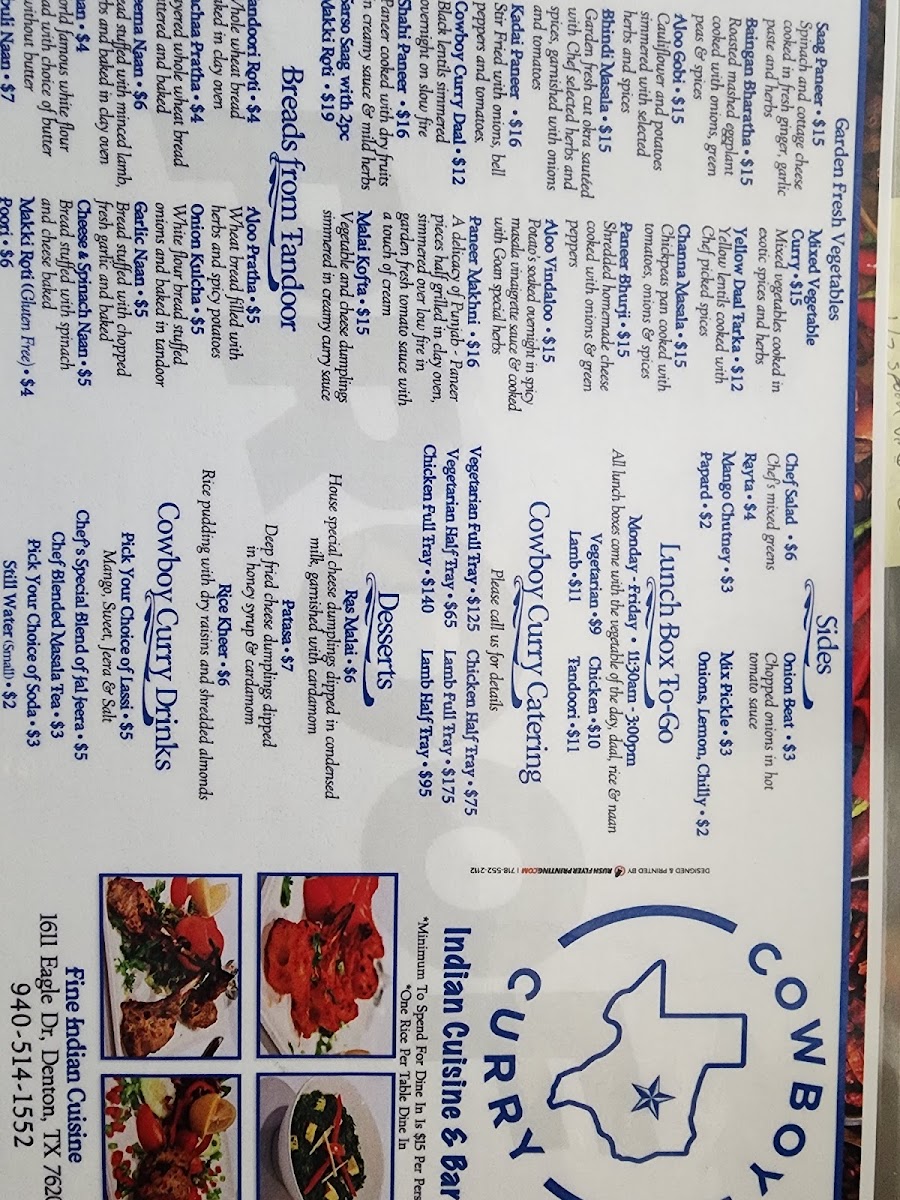 Garden Fresh Vegetables
Saag Paneer • $15
Spinach and cottage cheese
cooked in fresh ginger, garlic
paste and herbs
Baingan Bharatha • $15
Roasted mashed eggplant
cooked with onions, green
peas & spices
Aloo Gobi • $15
Cauliflower and potatoes
simmered with selected
herbs and spices
Bhindi Masala • $15
Garden fresh cut okra sautéed
with Chef selected herbs and
spices, garnished with onions
and tomatoes
Kadai Paneer • $16
Stir Fried with onions, bell
peppers and tomatoes
Cowboy Curry Daal • $12
Black lentils simmered
overnight on slow fire
Shahi Paneer • $16
Paneer cooked with dry fruits
in creamy sauce & mild herbs
Sarso Saag with 2pc
Makki Roti • $19
Mixed Vegetable
Curry • $15
Mixed vegetables cooked in
exotic spices and herbs
Yellow Daal Tarka • $12
Yellow lentil cooked with
Chef picked spices
Channa Masala • $15
Chickpeas pan cooked with
tomatoes, onions & spices
Paneer Bhurji • $15
Shredded homemade cheese
cooked with onions & green
peppers
Aloo Vindaloo • $15
Potato's soaked overnight in spicy
masala vinaigrate sauce & cooked
with Goan special herbs
Paneer Makhni • $16
A delicacy of Punjab - Paneer
pieces half grilled in clay oven,
simmered over low fire in
garden fresh tomato sauce with
a touch of cream
Malai Kofta • $15
Vegetable and cheese dumplings
simmered in creamy curry sauce
Breads from Tandoor
andoori Roti • $4
Whole wheat bread
aked in clay oven
achaa Pratha • $4
ayered whole wheat bread
ttered and baked
eema Naan • $6
ead stuffed with minced lamb,
rbs and baked in clay oven
aan • $4
orld famous white flour
ead with choice of butter
without butter
buli Naan • $7
Aloo Pratha • $5
Wheat bread filled with
herbs and spicy potatoes
Onion Kulcha • $5
White flour bread stuffed
onions and baked in tandoor
Garlic Naan • $5
Bread stuffed with chopped
fresh garlic and baked
Cheese & Spinach Naan • $5
Bread stuffed with spinach
and cheese baked
Makki Roti (Gluten Free) • $4
Poori • $6
Sides
Chef Salad • $6
Chef's mixed greens
Rayta • $4
Mango Chutney • $3
Papard • $2
Onion Beat • $3
Chopped onions in hot
tomato sauce
Mix Pickle • $3
Onions, Lemon, Chilly • $2
Lunch Box To-Go
Monday - Friday • 11:30am - 3:00pm
All lunch boxes come with the vegetable of the day, daal, rice & naan
Vegetarian • $9 Chicken • $10
Lamb • $11 Tandoori • $11
Cowboy Curry Catering
Please call us for details
Vegetarian Full Tray • $125 Chicken Half Tray • $75
Vegetarian Half Tray • $65 Lamb Full Tray • $175
Chicken Full Tray • $140 Lamb Half Tray • $95
Desserts
Ras Malai • $6
House special cheese dumplings dipped in condensed
milk, garnished with cardamom
Patasa • $7
Deep fried cheese dumplings dipped
in honey syrup & cardamom
Rice Kheer • $6
Rice pudding with dry raisins and shredded almonds
Cowboy Curry Drinks
Pick Your Choice of Lassi • $5
Mango, Sweet, Jeera & Salt
Chef's Special Blend of Jal Jeera • $5
Chef Blended Masala Tea • $3
Pick Your Choice of Soda • $3
Still Water (Small) • $2
DESIGNED & PRINTED BY RUSHFLYERPRINTING.COM | 718-552-2112
COWBOY
CURRY
Indian Cuisine & Bar
*Minimum To Spend For Dine In Is $15 Per Pers
*One Rice Per Table Dine In
Fine Indian Cuisine
1611 Eagle Dr, Denton, TX 7620
940-514-1552